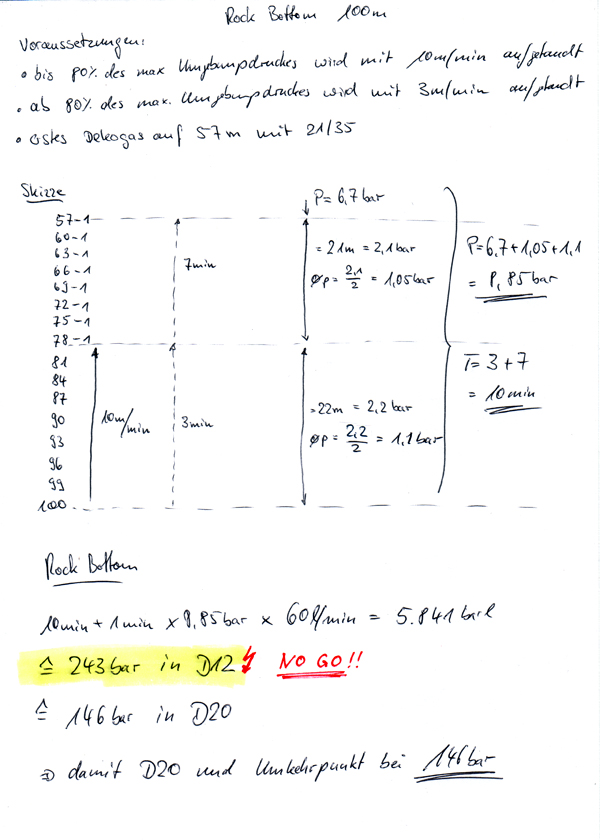 Rock Bottom 100m
Voraussetzungen:
• bis 80% des max Umgebungsdruckes wird mit 10m/min aufgetaucht
• ab 80% des max. Umgebungsdruckes wird mit 3m/min aufgetaucht
• erstes Dekogas auf 57m mit 21/35
Skizze
P= 6,7 bar
57-1
60-1
63-1
66-1
69-1
72-1
75-1
78-1
7min
= 21m = 2,1bar
øp = 2,1/2 = 1,05bar
P=6,7+1,05+1,1
= 8,85bar
81
84
87
90
93
96
99
100
10m/min
3min
=22m = 2,2 bar
øp = 2,2/2 = 1,1bar
T= 3+7
= 10min
Rock Bottom
10min + 1min x 8,85bar x 60l/min = 5.841 barl
≙ 243bar in D12 NO GO!!
≙ 146bar in D20
⇒ damit D20 und Umkehrpunkt bei 146bar